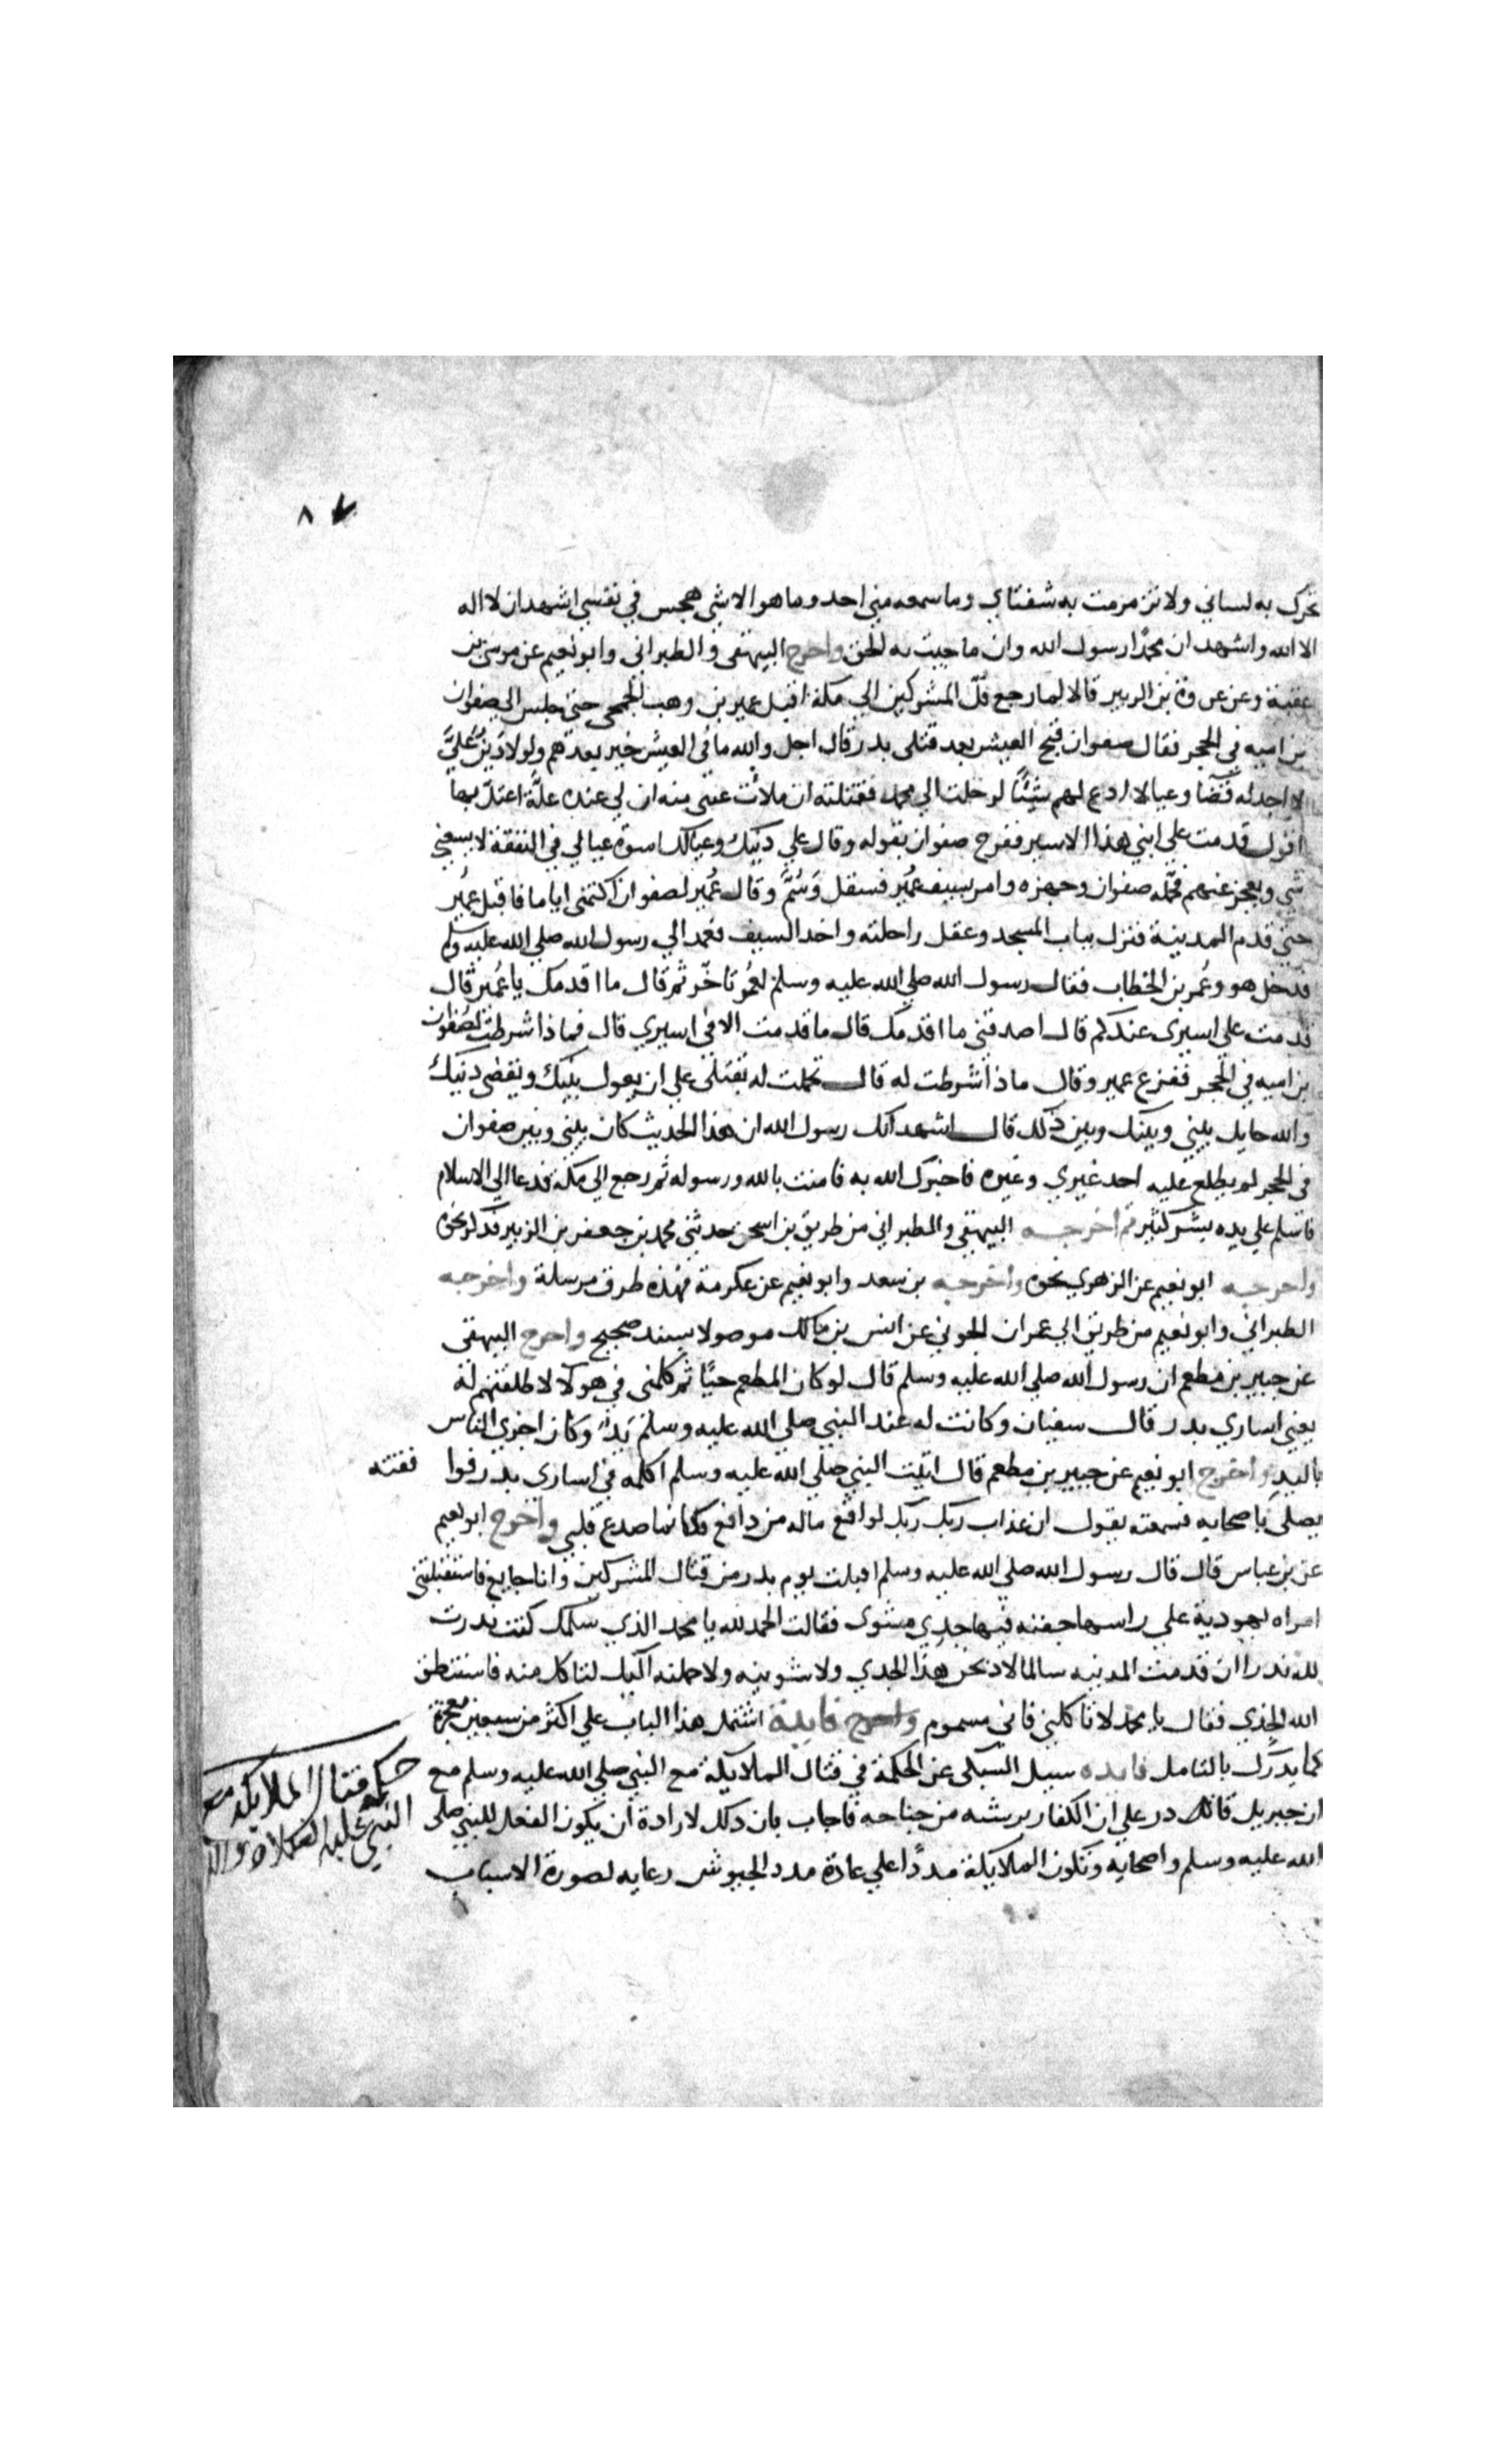 ٨٧
تحرك به لساني ولا تزمزمت به شفتاي وما سمعه مني احد وما هو الا شي هجس في نفسي اشهد ان لا اله
الا الله واشهد ان محمدًا رسول الله وان ما جيت به الحق واخرج البيهقي والطبراني وابو نعيم عن موسى بن
عقبة وعن عروة بن الزبير قالا لما رجع فلّ المشركين الي مكة اقبل عمير بن وهب الجمحي حتى جلس الى صفوان
بن اميه في الحجر فقال صفوان قبح العيش بعد قتلى بدر قال اجل والله ما في العيش خير بعدهم ولولا دَين عليَّ
لا اجد له قضًا وعيالا ادع لهم شيئًا لرحلت الي محمد فقتلته ان ملات عيني منه ان لي عنده علَّة اعتدّ بها
اقول قدمت علي ابني هذا الاسير ففرح صفوان بقوله وقال علي دينك وعيالك اسوة عيالي في النفقة لا يسعني
شي ويعجز عنهم فحمله صفوان وجهزه وامر بسيف عُمير فسقل وَسُمَّ وقال عُمير لصفوان اكتمني اياما فاقبل عمير
حتى قدم المدينة فنزل بباب المسجد وعقل راحلته واخذ السيف فعمد الي رسول الله صلى الله عليه وسلم
فدخل هو وعُمر بن الخطاب فقال رسول الله صلى الله عليه وسلم لعُمر تاخّر ثم قال ما اقدمك يا عُمير قال
قدمت على اسيرى عندكم قال اصدقني ما اقدمك قال ما قدمت الا في اسيري قال فماذا شرطت لصفوان
بن اميه في الحجر ففزع عمير وقال ماذا شرطت له قال تحملت له بقتلى على ان يعول بنيك ويقضى دينك
والله حايل بيني وبينك وبين ذلك قال اشهد انك رسول الله ان هذا الحديث كان بيني وبين صفوان
في الحجر لم يطلع عليه احد غيري وغيره فاخبرك الله به فامنت بالله ورسوله ثم رجع الي مكة فدعا الي الاسلام
فاسلم علي يده بشر كثير ثم اخرجه البيهقي والطبراني من طريق بن اسحق حدثني محمد بن جعفر بن الزبير فذكر نحوه
واخرجه ابو نعيم عن الزهري نحوه واخرجه بن سعد وابو نعيم عن عكرمة فهذه طرق مرسلة واخرجه
الطبراني وابو نعيم من طريق ابي عمران الجوني عن انس بن مالك موصولا بسند صحيح واخرج البيهقى
عن جبير بن مطعم ان رسول الله صلى الله عليه وسلم قال لو كان المطعم حيًا ثم كلمنى في هولا لاطلقتهم له
يعني اساري بدر قال سفيان وكانت له عند النبي صلى الله عليه وسلم يَدٌ وكان اجزي الناس
باليد واخرج ابو نعيم عن جبير بن مطعم قال اتيت النبي صلى الله عليه وسلم اكلمه في اسارى بدر فوافقته
يصلى باصحابه فسمعته يقول ان عذاب ربك ربك لواقع ماله من دافع فكانما صدع قلبي واخرج ابو نعيم
عن بن عباس قال قال رسول الله صلى الله عليه وسلم اقبلت يوم بدر من قتال المشركين وانا جايع فاستقبلتني
امراه يهودية علي راسها جفنه فيها جدي مشوى فقالت الحمد لله يا محمد الذي سلمك كنت نذرت
لله نذرا ان قدمت المدينه سالما لاذبحن هذا الجدي ولاشوينه ولاحملنه اليك لتاكل منه فاستنطق
الله الجدي فقال يا محمد لا تاكلني فاني مسموم واخرج فايدة اشتمل هذا الباب علي اكثر من سبعين معجزة
كما يدرك بالتامل فايده سيل السبكى عن الحكمة في قتال الملايكة مع النبي صلى الله عليه وسلم مع
ان جبريل قادر علي ان الكفار بريشه من جناحه فاجاب بان ذلك لارادة ان يكون الفعل للنبي صلى
الله عليه وسلم واصحابه وتكون الملايكة مددًا علي عادة مدد الجيوش رعايه لصورة الاسباب
حكمة قتال الملايكة مع
النبي عليه الصلاة